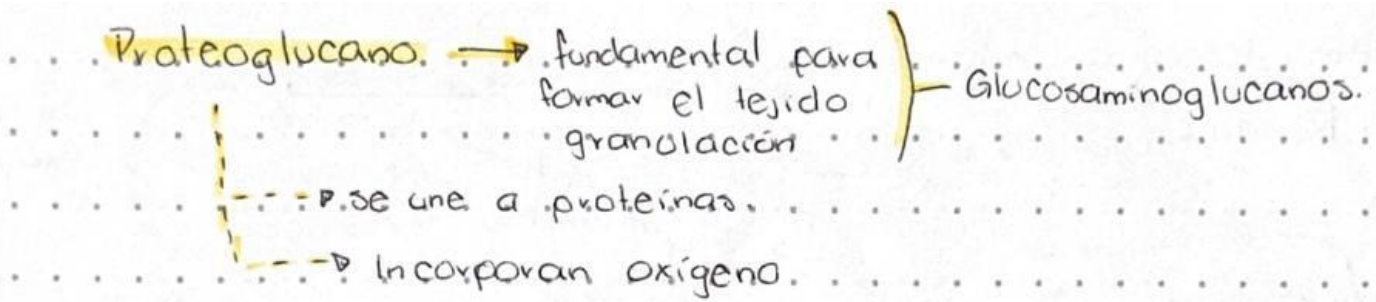 Proteoglucano. → fundamental para
formar el tejido
granulación
Glucosaminoglucanos.
se une a proteínas.
Incorporan oxígeno.